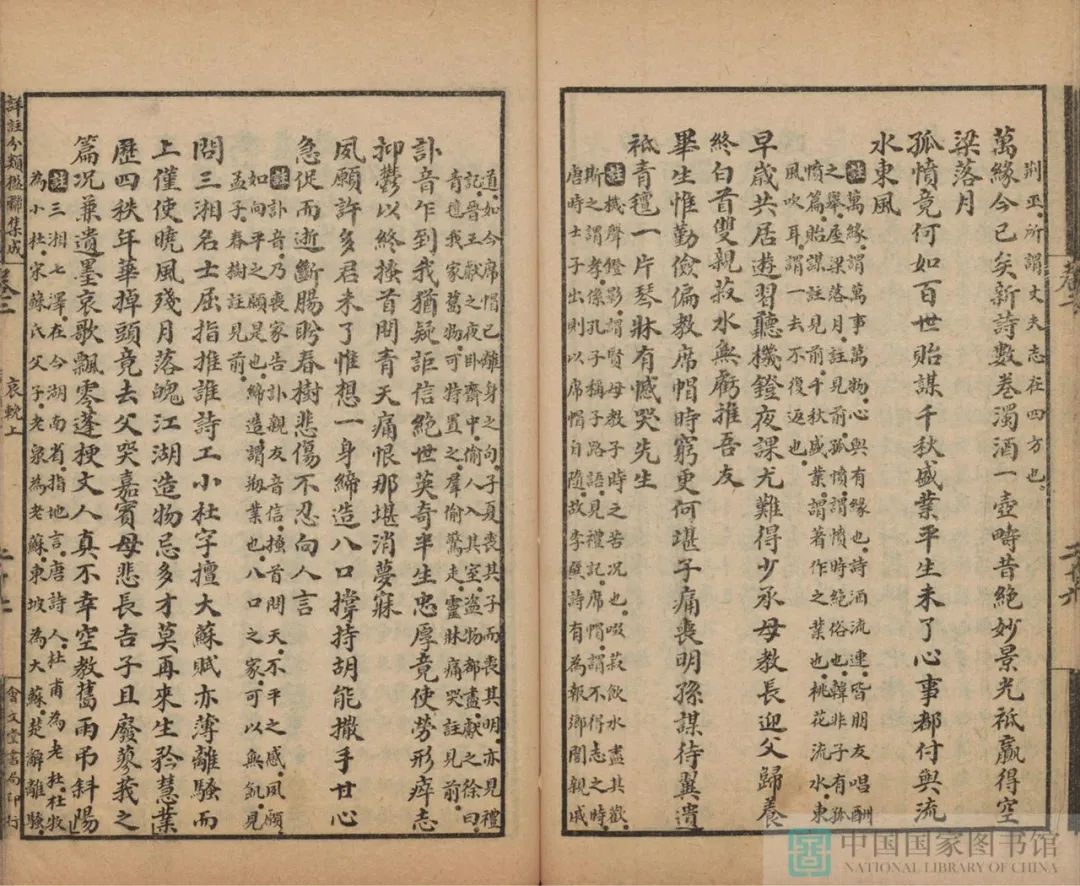 荆巫所謂丈夫志在四方也
萬緣今已矣新詩數卷濁酒一壺疇昔絕妙景光祗贏得空
梁落月
孤憤竟何如百世貽謀千秋盛業平生未了心事都付與流
水東風
註萬緣謂萬事萬物心與有緣也詩酒流連皆朋友唱酬
之舉屋梁落月註見前孤憤謂憤時絕俗也韓非子有孤
憤篇貽謀註見前千秋盛業謂著作之業也桃花流水東
風吹耳謂一去不復返也
早歲共居遊習聽機鐙夜課尤難得少承母教長迎父歸養
終白首雙親菽水無虧雅吾友
畢生惟勤儉偏教席帽時窮更何堪子痛喪明孫謀待翼遺
祗青氊一片琴牀有憾哭先生
註機聲鐙影謂賢母教子時之苦况也啜菽飲水盡其歡
斯之謂孝係孔子稱子路語見禮記席帽謂不得志之時
唐時士子出則以席帽自隨故李巽詩有為報鄉閭親戚
道如今席帽已離身之句子夏喪其子而喪其明亦見禮
記晉王獻之夜卧齋中偷人入其室盗物都盡獻之徐曰
青氊我家舊物可特置之羣偷驚走靈牀痛哭註見前
訃音乍到我猶疑詎信絕世英奇半生忠厚竟使勞形瘁志
抑鬱以終搔首問青天痛恨那堪消夢寐
夙願許多君未了惟想一身締造八口撐持胡能撒手甘心
急促而逝斷腸盼春樹悲傷不忍向人言
註訃音乃喪家告訃親友音信搔首問天不平之感夙願
如向平之願是也締造謂剏業也八口之家可以無飢見
孟子春樹註見前
問三湘名士屈指推誰詩工小杜字擅大蘇賦亦薄離騷而
上僅使曉風殘月落魄江湖造物忌多才莫再來生矜慧業
歷四秩年華掉頭竟去父哭嘉賓母悲長吉子且廢蓼莪之
篇况兼遺墨哀歌飄零蓬梗文人真不幸空教舊雨弔斜陽
註三湘七澤在今湖南省指地言唐詩人杜甫為老杜杜牧
為小杜宋蘇氏父子老泉為老蘇東坡為大蘇楚辭離騷
詳註分類楹聯集成
卷二
哀輓上
會文堂書局印行
中国国家图书馆
NATIONAL LIBRARY OF CHINA